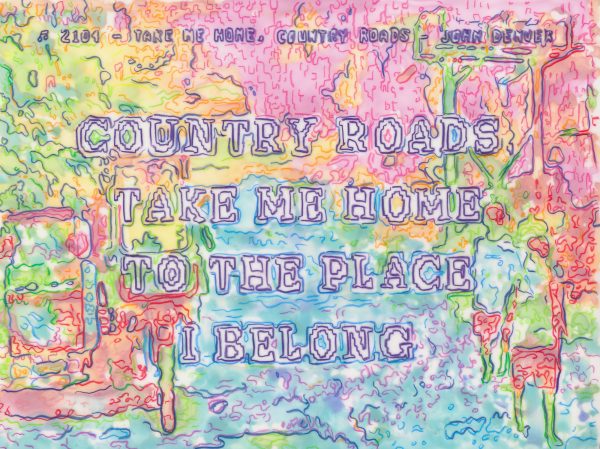 ♬ 2104 - TAKE ME HOME, COUNTRY ROADS - JOHN DENVER
COUNTRY ROADS
TAKE ME HOME
TO THE PLACE
I BELONG